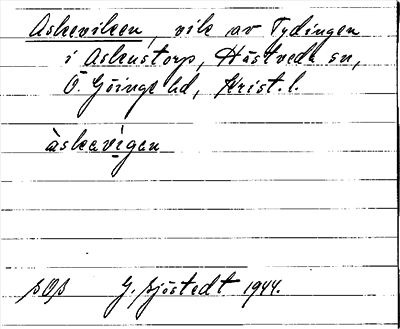 Askeviken, vik av Tydingen
i Askustorp, Hästveda sn,
Ö. Göinge hd, Krist. l.
àskavìgan
SOS G. Sjöstedt 1944.